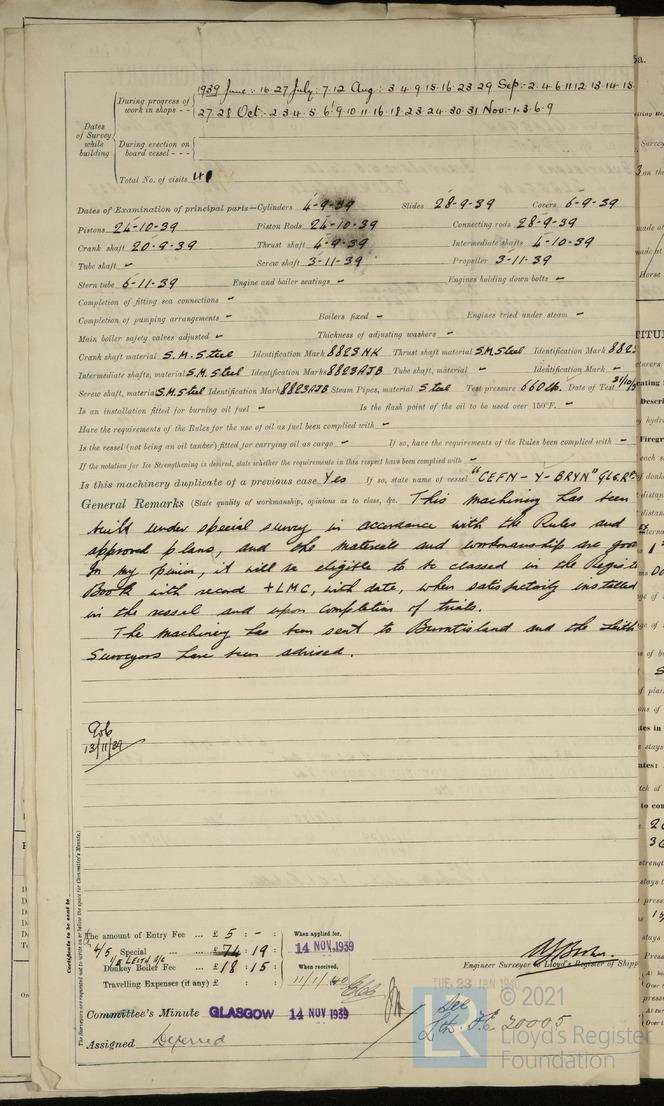 1939 June: 16 27 July: 7 12 Aug: 3 4 9 15 16 23 29 Sep: 2 4 6 11 12 13 14 15
During progress of work in shops - -
27 28 Oct: 2 3 4 5 6 9 10 11 16 18 23 24 30 31 Nov: 1 3 6 9
Dates of Survey while building
During erection on board vessel - - -
Total No. of visits 40
Dates of Examination of principal parts—Cylinders 4-9-39 Slides 28-9-39 Covers 6-9-39
Pistons 24-10-39 Piston Rods 24-10-39 Connecting rods 28-9-39
Crank shaft 20-9-39 Thrust shaft 4-9-39 Intermediate shafts 4-10-39
Tube shaft - Screw shaft 3-11-39 Propeller 3-11-39
Stern tube 6-11-39 Engine and boiler seatings - Engines holding down bolts -
Completion of fitting sea connections -
Completion of pumping arrangements - Boilers fixed - Engines tried under steam -
Main boiler safety valves adjusted - Thickness of adjusting washers -
Crank shaft material S.M. Steel Identification Mark 8823NK Thrust shaft material S.M Steel Identification Mark 882
Intermediate shafts, material S.M. Steel Identification Marks 8823AJB Tube shaft, material - Identification Mark -
Screw shaft, material S.M. Steel Identification Mark 8823AJB Steam Pipes, material Steel Test pressure 660 lb. Date of Test
Is an installation fitted for burning oil fuel - Is the flash point of the oil to be used over 150°F. -
Have the requirements of the Rules for the use of oil as fuel been complied with -
Is the vessel (not being an oil tanker) fitted for carrying oil as cargo - If so, have the requirements of the Rules been complied with -
If the notation for Ice Strengthening is desired, state whether the requirements in this respect have been complied with -
Is this machinery duplicate of a previous case Yes If so, state name of vessel "CEFN-Y-BRYN" GLS.RP
General Remarks (State quality of workmanship, opinions as to class, &c. This machinery has been
built under special survey in accordance with the Rules and
approved plans, and the materials and workmanship are good
In my opinion, it will be eligible to be classed in the Register
Book with record +LMC, with date, when satisfactorily installed
in the vessel and upon completion of trials.
The machinery has been sent to Burntisland and the Leith
Surveyors have been advised.
13/11/39
Certificate to be sent to
The Surveyors are requested not to write on or below the space for Committee's Minute.
The amount of Entry Fee ... £ 5 : - : When applied for,
4/5 Special ... £ 74 : 19 : 14 NOV.1939
1/5 LEITH a/c
Donkey Boiler Fee ... £ 18 : 15 : When received,
Travelling Expenses (if any) £ : : 11/1/40
Engineer Surveyor to Lloyd's Register of Shipp
TUE. 23 JAN 1940
Committee's Minute GLASGOW 14 NOV 1939
See
Lth. F.E. 20005
Assigned Deferred
© 2021
Lloyd's Register
Foundation